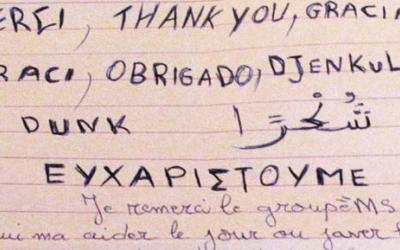 ERCI, THANK YOU, GRACIA
RACI, OBRIGADO, DJENKUL
DUNK شُكْرًا
ΕΥΧΑΡΙΣΤΟΥΜΕ
Je remerci le groupe MS
ui ma aider le jour ou javer